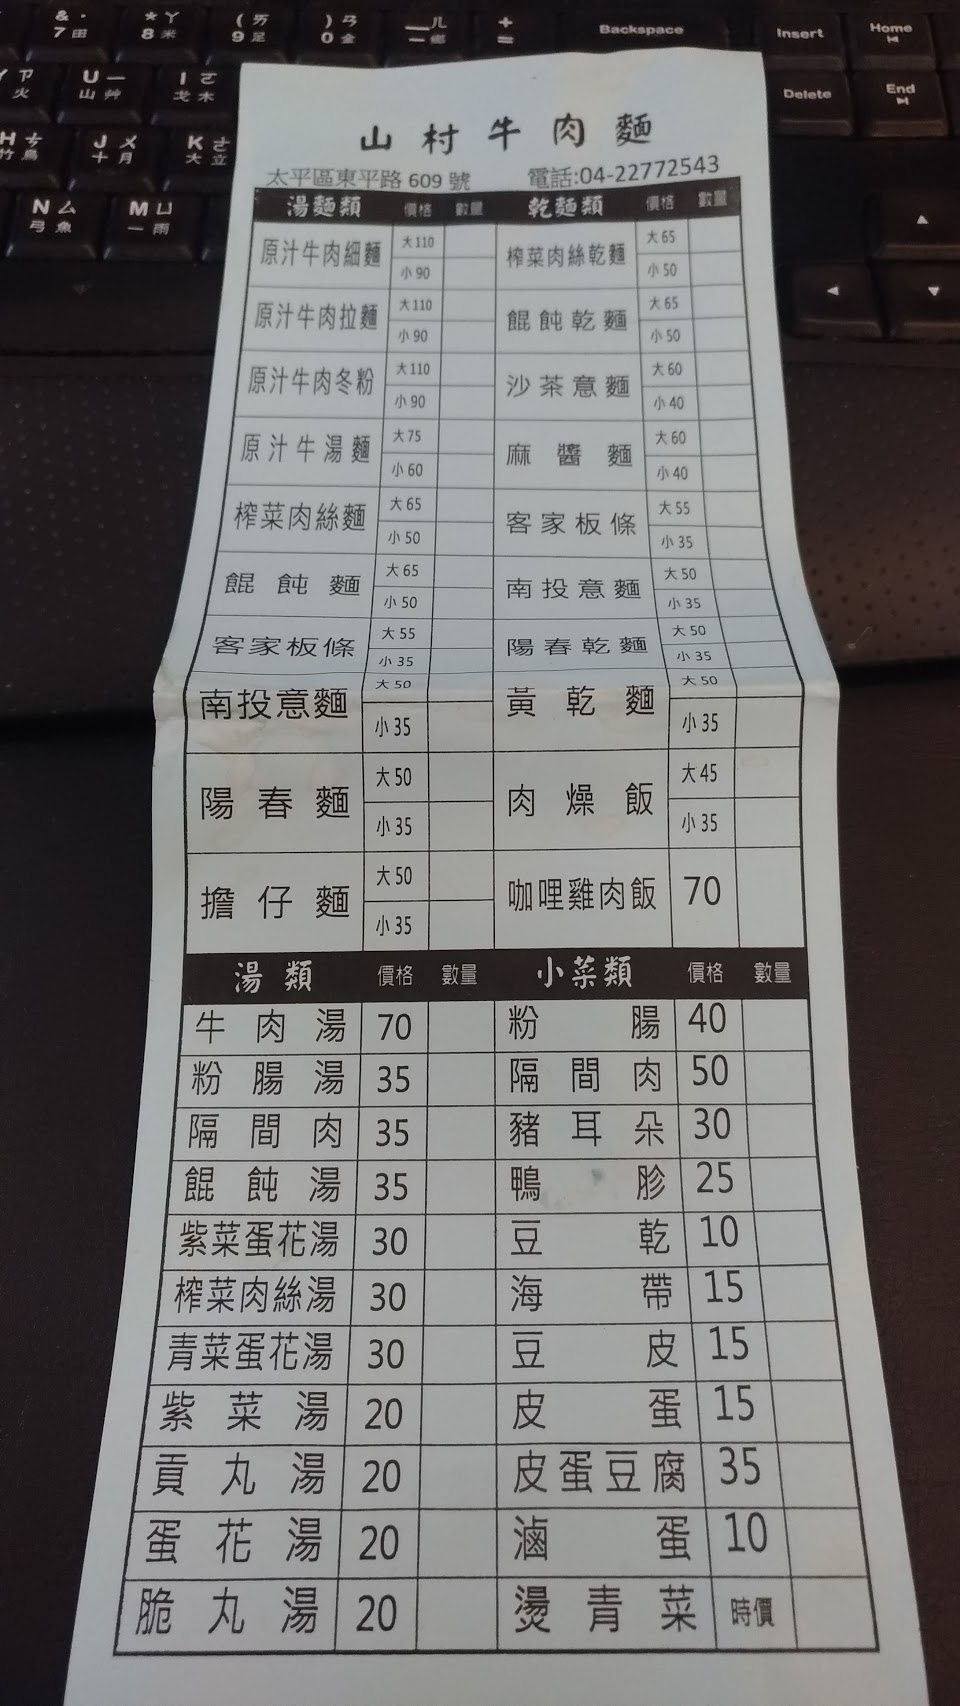 &. 7 田
*ㄚ 8 米
(ㄞ 9 足
)ㄢ 0 金
—ㄦ — 鄉
+ =
Backspace
Insert
Home
ㄗ 火
U ㄧ 山 艸
I ㄛ 戈 木
Delete
End
H ㄘ 竹 鳥
J ㄨ 十 月
K ㄜ 大 立
N ㄙ 弓 魚
M ㄩ 一 雨
山村牛肉麵
太平區東平路 609 號 電話:04-22772543
湯麵類 價格 數量 乾麵類 價格 數量
原汁牛肉細麵 大110 小90 榨菜肉絲乾麵 大65 小50
原汁牛肉拉麵 大110 小90 餛飩乾麵 大65 小50
原汁牛肉冬粉 大110 小90 沙茶意麵 大60 小40
原汁牛湯麵 大75 小60 麻醬麵 大60 小40
榨菜肉絲麵 大65 小50 客家板條 大55 小35
餛飩麵 大65 小50 南投意麵 大50 小35
客家板條 大55 小35 陽春乾麵 大50 小35
南投意麵 大50 小35 黃乾麵 大50 小35
陽春麵 大50 小35 肉燥飯 大45 小35
擔仔麵 大50 小35 咖哩雞肉飯 70
湯類 價格 數量 小菜類 價格 數量
牛肉湯 70 粉腸 40
粉腸湯 35 隔間肉 50
隔間肉 35 豬耳朵 30
餛飩湯 35 鴨胗 25
紫菜蛋花湯 30 豆乾 10
榨菜肉絲湯 30 海帶 15
青菜蛋花湯 30 豆皮 15
紫菜湯 20 皮蛋 15
貢丸湯 20 皮蛋豆腐 35
蛋花湯 20 滷蛋 10
脆丸湯 20 燙青菜 時價